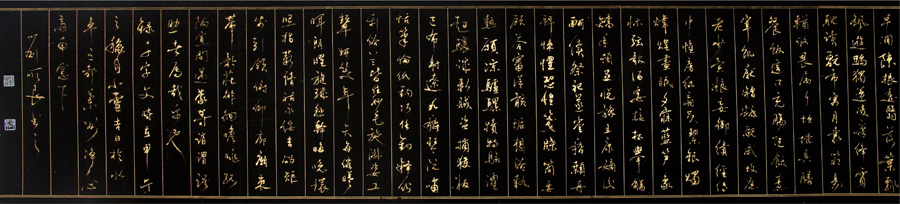 早凋陳根委翳落葉飄
颻遊鵾獨運凌摩絳霄
耽讀翫市寓目囊箱易
輶攸畏屬耳垣牆具膳
飡飯適口充腸飽飫烹
宰飢厭糟糠親戚故舊
老少異糧妾御績紡侍
巾帷房紈扇圓潔銀燭
煒煌晝眠夕寐藍筍象
床弦歌酒讌接杯舉觴
矯手頓足悅豫且康嫡後
嗣續祭祀烝嘗稽顙再
拜悚懼恐惶箋牒簡要
顧答審詳骸垢想浴執
熱願涼驢騾犢特駭躍
超驤誅斬賊盜捕獲叛
亡布射遼丸嵇琴阮嘯
恬筆倫紙鈞巧任釣釋紛
利俗並皆佳妙毛施淑姿工
顰妍笑年矢每催曦
暉朗曜璇璣懸斡晦魄環
照指薪修祜永綏吉劭矩
步引領俯仰廊廟束
帶矜莊徘徊瞻眺孤
陋寡聞愚蒙等誚謂語
助者焉哉乎也
錄千字文時在甲午
之月小雪吉日於